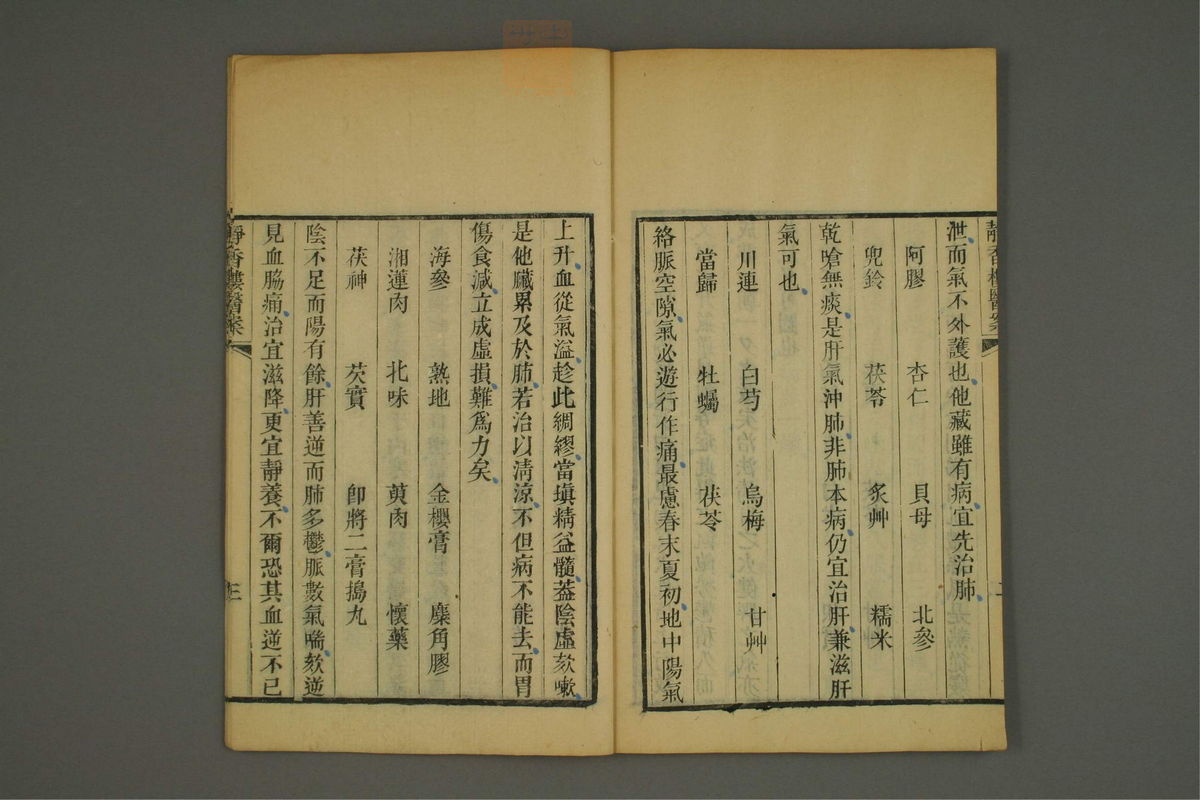 靜香樓醫案
二
泄而氣不外護也他藏雖有病宜先治肺
阿膠 杏仁 貝母 北參
兜鈴 茯苓 炙艸 糯米
乾嗆無痰是肝氣沖肺非肺本病仍宜治肝兼滋肝
氣可也
川連 白芍 烏梅 甘艸
當歸 牡蠣 茯苓
絡脈空隙氣必遊行作痛最慮春末夏初地中陽氣
上升血從氣溢趁此綢繆當塡精益髓葢陰虛欬嗽
是他臟累及於肺若治以淸涼不但病不能去而胃
傷食減立成虛損難爲力矣
海參 熟地 金櫻膏 麋角膠
湘蓮肉 北味 萸肉 懷藥
茯神 芡實 卽將二膏搗丸
陰不足而陽有餘肝善逆而肺多鬱脈數氣喘欬逆
見血脇痛治宜滋降更宜靜養不爾恐其血逆不已
靜香樓醫案
三